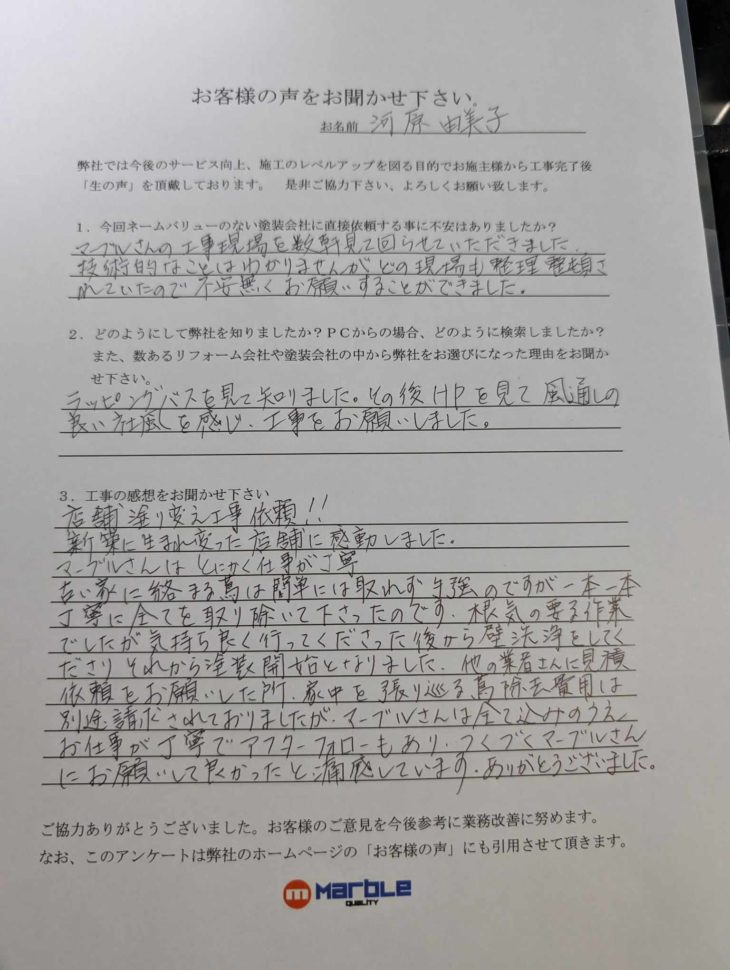 お客様の声をお聞かせ下さい。
お名前 河原 由美子
弊社では今後のサービス向上、施工のレベルアップを図る目的でお施主様から工事完了後
「生の声」を頂戴しております。 是非ご協力下さい、よろしくお願い致します。
1．今回ネームバリューのない塗装会社に直接依頼する事に不安はありましたか？
マーブルさんの工事現場を数軒見て回らせていただきました.
技術的なことはわかりませんがどの現場も整理整頓さ
れていたので不安無くお願いすることができました。
2．どのようにして弊社を知りましたか？PCからの場合、どのように検索しましたか？
また、数あるリフォーム会社や塗装会社の中から弊社をお選びになった理由をお聞か
せ下さい。
ラッピングバスを見て知りました。その後HPを見て風通しの
良い社風を感じ、工事をお願いしました。
3．工事の感想をお聞かせ下さい
店舗塗り変え工事依頼!!
新築に生まれ変った店舗に感動しました。
マーブルさんはとにかく仕事が丁寧
古い家に絡まる蔦は簡単には取れず手強のですが一本一本
丁寧に全てを取り除いて下さったのです. 根気の要る作業
でしたが気持ち良く行ってくださった後から壁洗浄をしてく
ださりそれから塗装開始となりました. 他の業者さんに見積
依頼をお願いした所、家中を張り巡る蔦除去費用は
別途請求されておりましたが、マーブルさんは全て込みのうえ、
お仕事が丁寧でアフターフォローもあり、つくづくマーブルさん
にお願いして良かったと痛感しています. ありがとうございました。
ご協力ありがとうございました。お客様のご意見を今後参考に業務改善に努めます。
なお、このアンケートは弊社のホームページの「お客様の声」にも引用させて頂きます。
m MarbLe
QUALITY